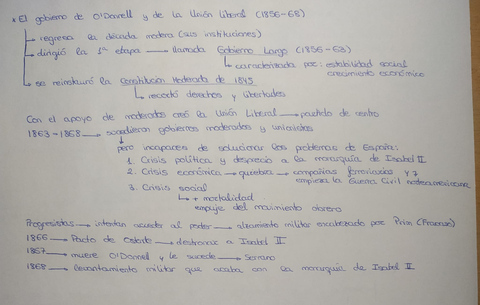 * El gobierno de O'Donnell y de la Unión Liberal (1856-68)
regresa la década modera (sus instituciones)
dirigió la 1ª etapa → llamada Gobierno Largo (1856-63)
caracterizada por: estabilidad social
crecimiento económico
se reinstauró la Constitución Moderada de 1845
recortó derechos y libertades
Con el apoyo de moderados creó la Unión Liberal → partido de centro
1863-1868 → sucedieron gobiernos moderados y unionistas
pero incapaces de solucionar los problemas de España:
1. Crisis política y desprecio a la monarquía de Isabel II
2. Crisis económica → quiebra → compañías ferroviarias y
empieza la Guerra Civil norteamericana
3. Crisis social
→ + mortalidad
empuje del movimiento obrero
Progresistas → intentan acceder al poder → alzamiento militar encabezado por Prim (Fracaso)
1866 → Pacto de Ostende → destronar a Isabel II
1867 → muere O'Donnell y le sucede → Serrano
1868 → levantamiento militar que acaba con la monarquía de Isabel II